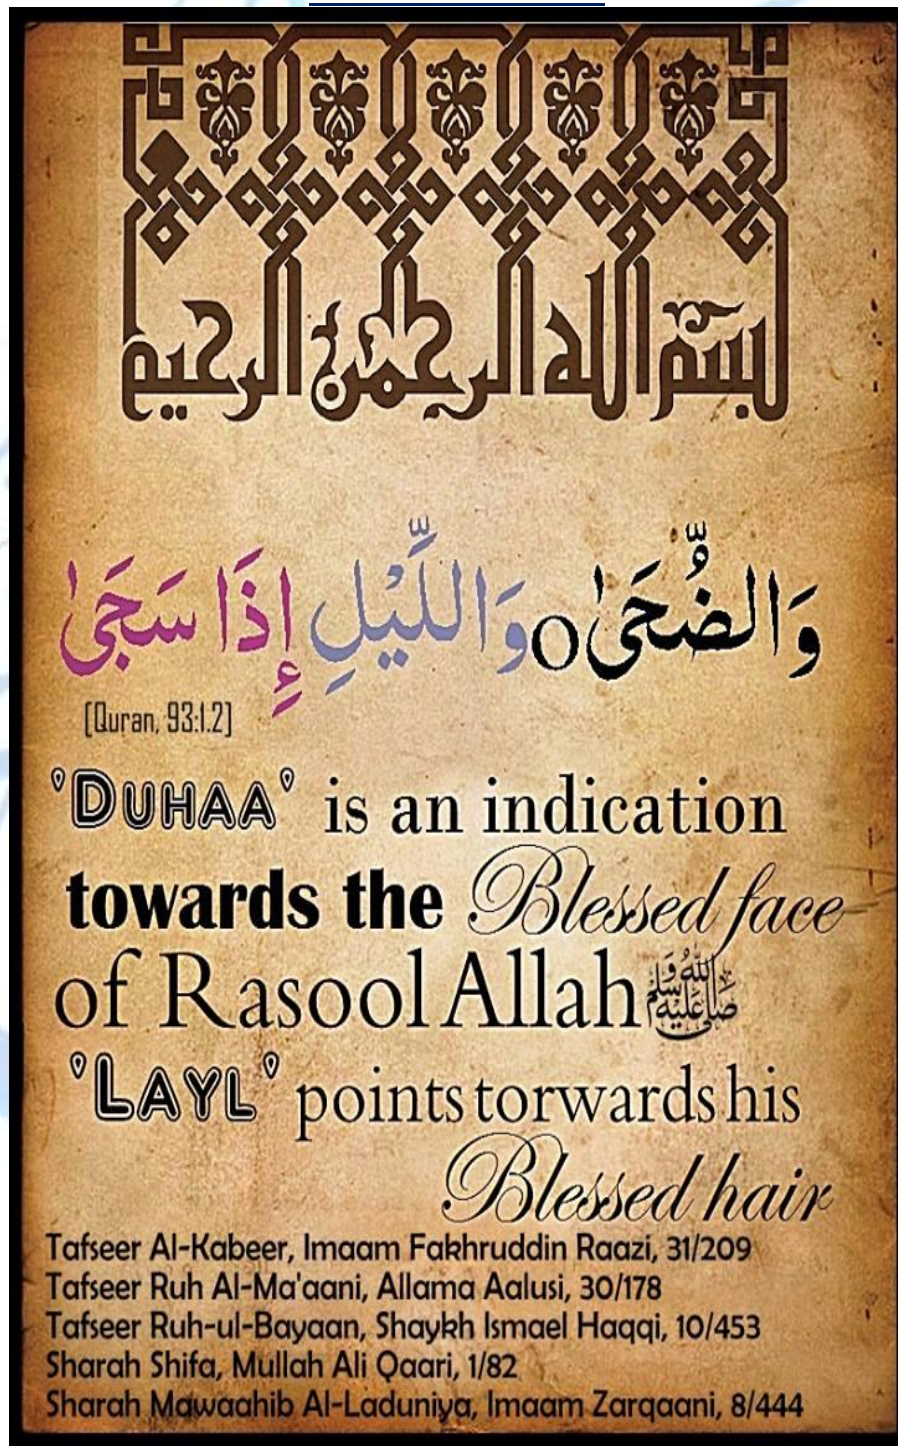 بسم الله الرحمن الرحيم
وَالضُّحَىٰ O وَاللَّيْلِ إِذَا سَجَىٰ
[Quran, 93:1.2]
'DUHAA' is an indication
towards the Blessed face
of Rasool Allah ﷺ
'LAYL' points torwards his
Blessed hair
Tafseer Al-Kabeer, Imaam Fakhruddin Raazi, 31/209
Tafseer Ruh Al-Ma'aani, Allama Aalusi, 30/178
Tafseer Ruh-ul-Bayaan, Shaykh Ismael Haqqi, 10/453
Sharah Shifa, Mullah Ali Qaari, 1/82
Sharah Mawaahib Al-Laduniya, Imaam Zarqaani, 8/444